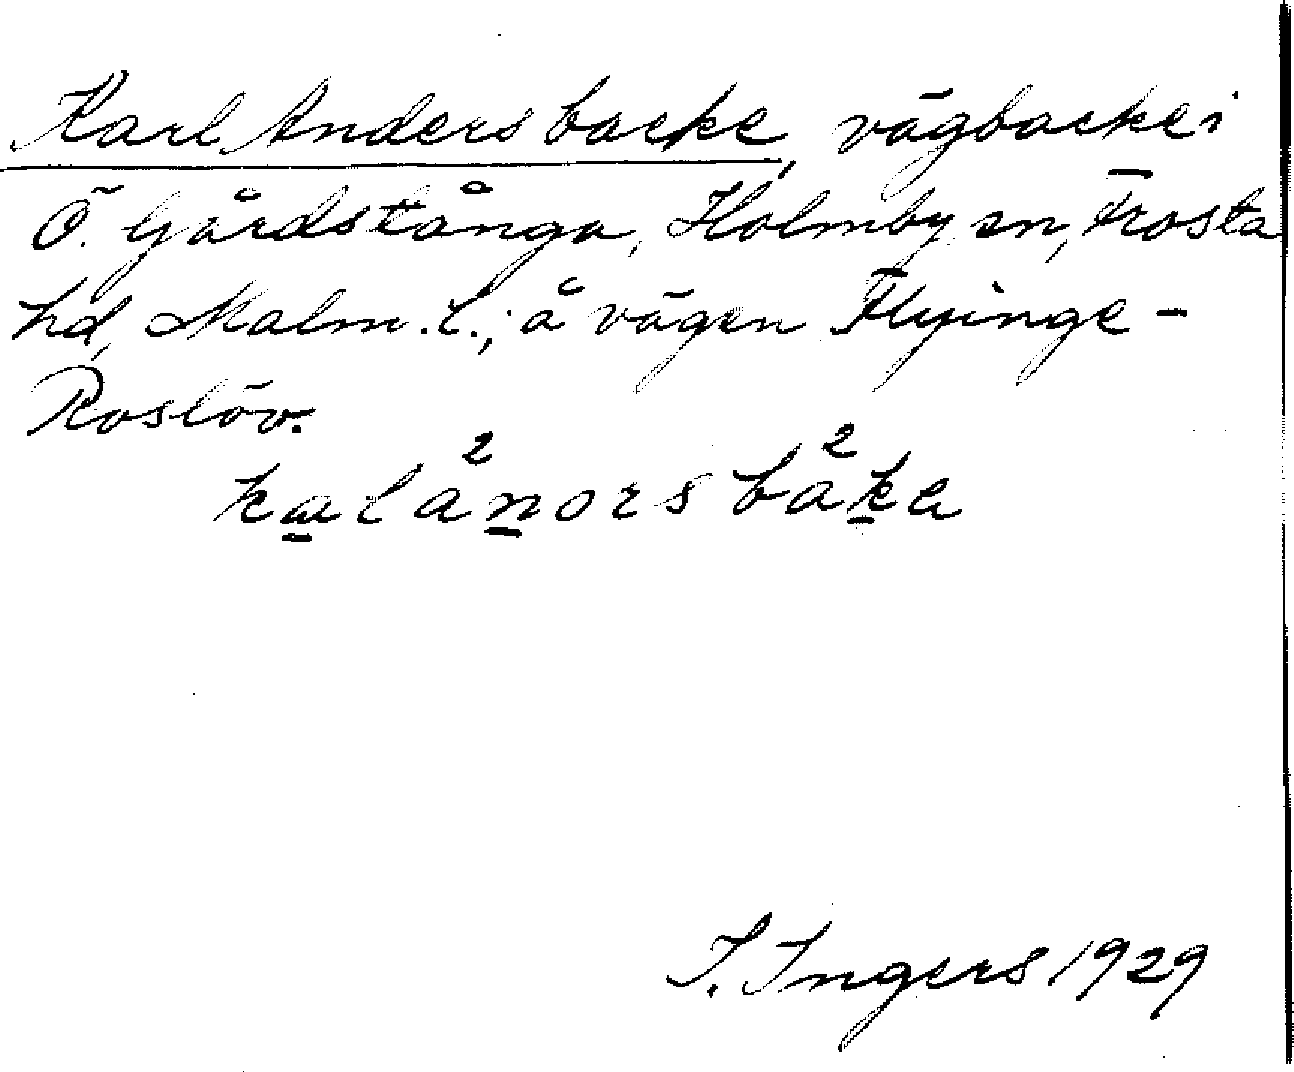 Karl Anders backe, vägbacke i
Ö. Gårdstånga, Holmby sn, Frosta
hd, Malm. l.; å vägen Flyinge-
Roslöv.
kalånors båka
I. Ingers 1929